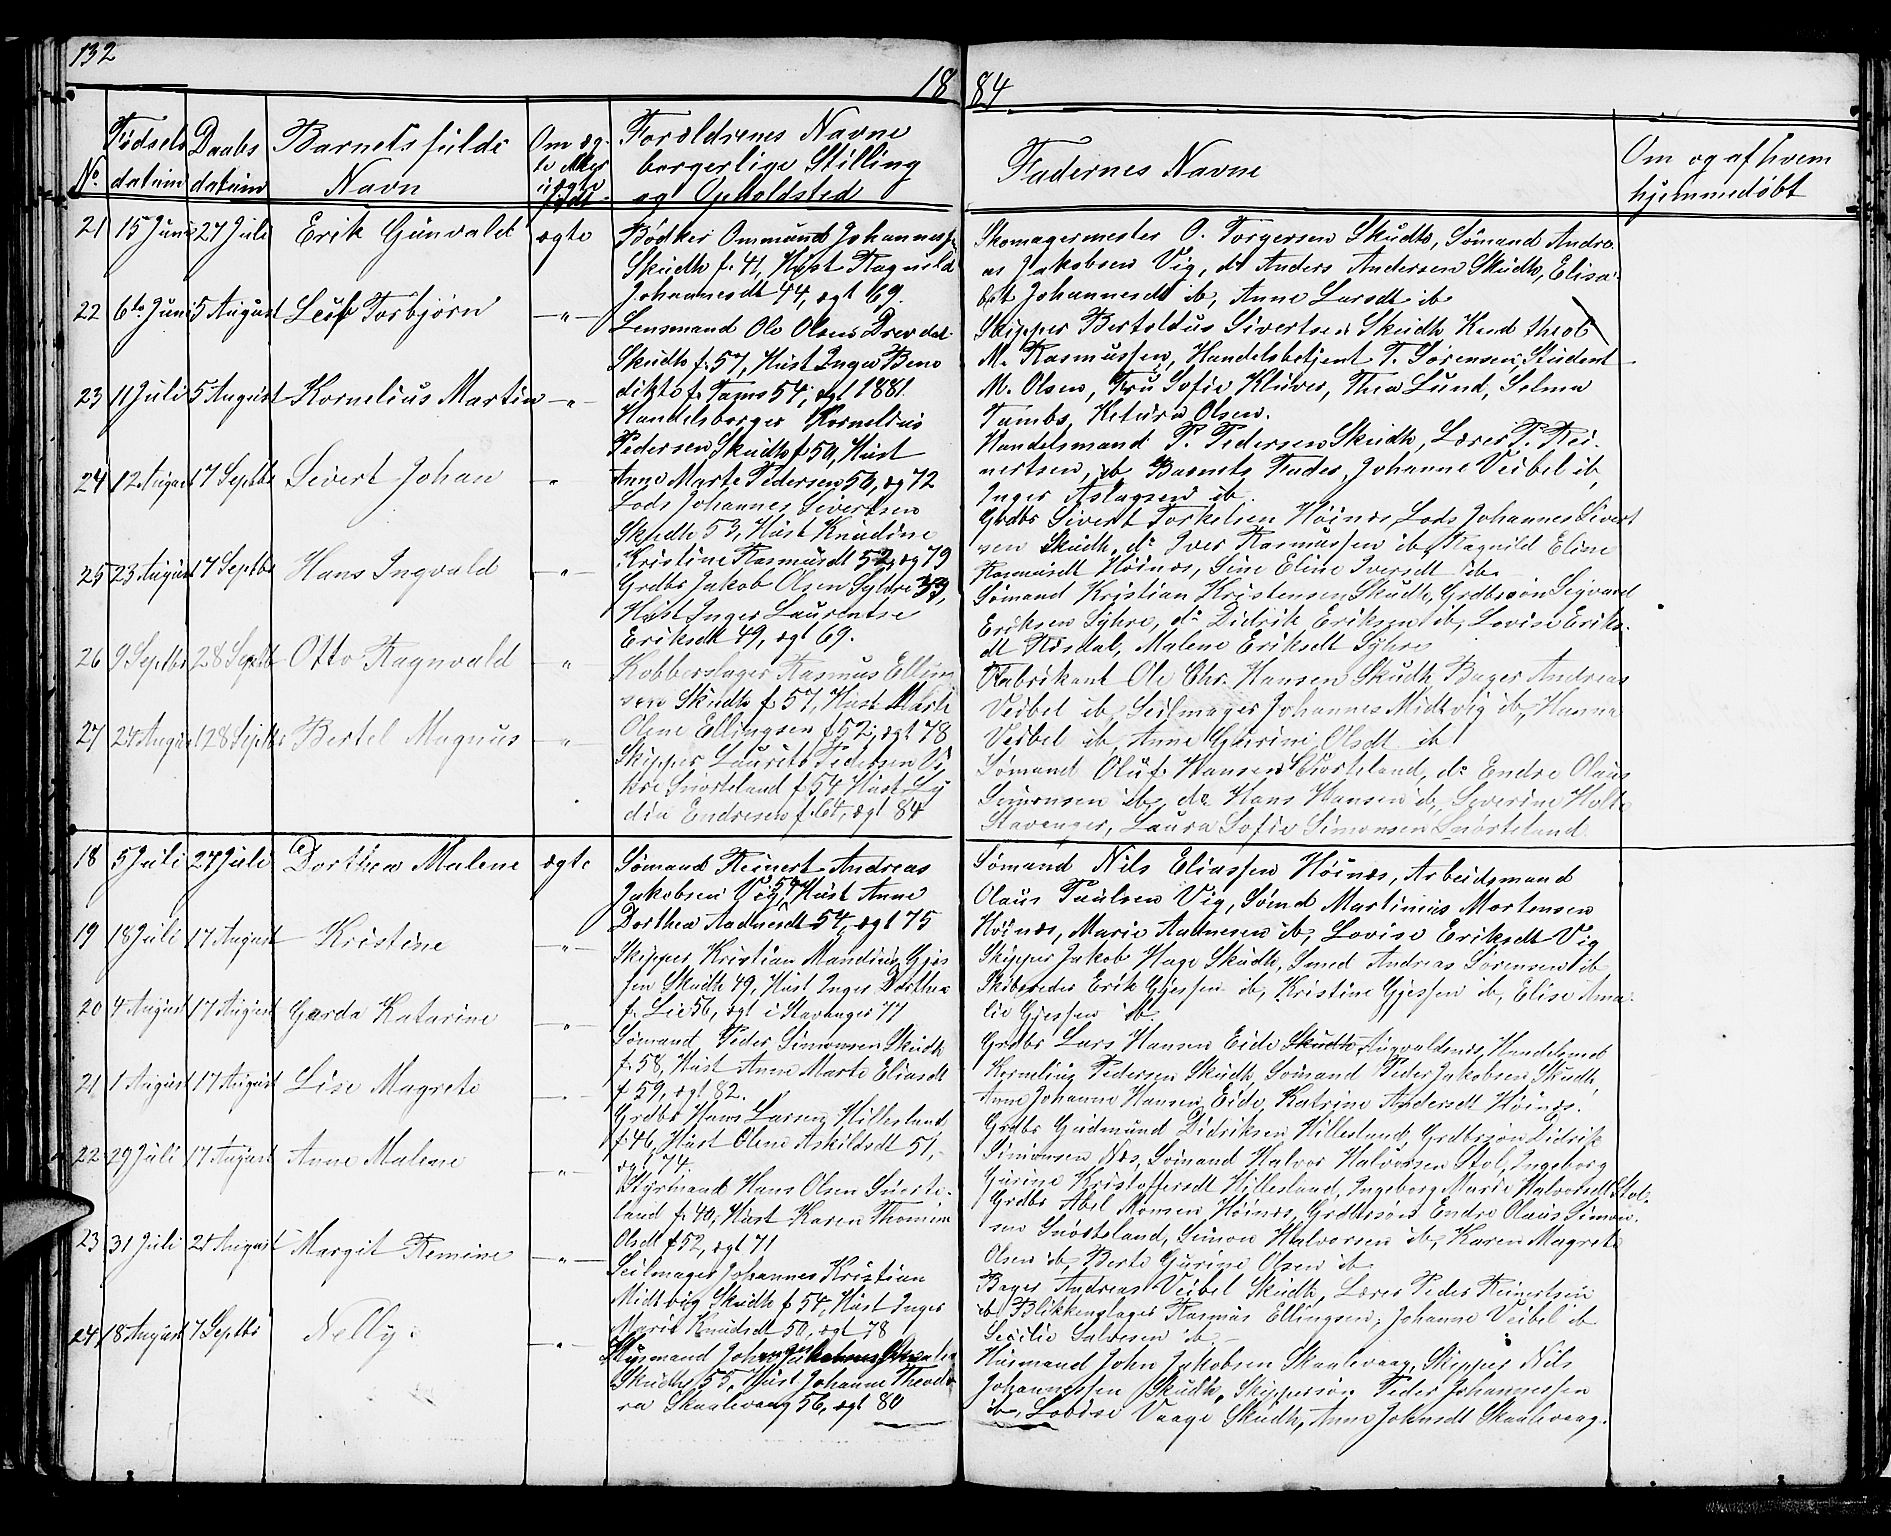 132
18 84
No. Fødsels datum Daabs datum Barnets fulde Navn Om ægte eller uægte født Forældrenes Navne borgerlige Stilling og Opholdsted Fadernes Navne Om og af hvem hjemmedøbt
21 15 Juni 27 Juli Erik Gunvald ægte
Bødker Ommund Johanness.
Skudh f. 41, Hust Ragnild
Johannesdt 44, ægt 69.
Skomagermester O. Torgersen Skudh, Sømand Andre
as Jakobsen Vig, do Anders Andersen Skudh, Elisa-
bet Johannesdt ib, Anne Larsdt ib
22 6te Juni 5 August Leif Torbjørn -"-
Lensmand Ole Olsen Drevdal
Skudh f. 57, Hust Inga Bene
dikte f. Tams 54, ægt 1881.
Skipper Bertoldus Sivertsen Skudh Kand theol
M. Rasmussen, Handelsbetjent T. Sørensen, Student
M. Olsen, Fru Sofie Kluver, Thea Lund, Selma
Tambs, Ketura Olsen.
23 11 Juli 5 August Kornelius Martin -"-
Handelsborger Kornelius
Pedersen Skudh f 50, Hust
Anne Marte Pedersen 50, æg 72
Handelsmand P. Pedersen Skudh, Lærer P. Rei-
nertsen, ib Barnets Fader, Johanne Veibel ib,
Inger Aslagsen ib.
24 12 August 7 Septbr Sivert Johan -"-
Lods Johannes Sivertsen
Skudh 53, Hust Knudine
Kristine Rasmusdt 52, æg 79
Grdbr Sivert Torkelsen Høinæs, Lods Johannes Sivert
sen Skudh, do Iver Rasmussen ib, Ragnild Eline
Rasmusdt Høinæs, Sine Eline Iversdt ib.
25 23 August 7 Septbr Hans Ingvald -"-
Grdbr Jakob Olsen Syhre 33,
Hust Inger Laurentse
Eriksdt 49, ægt 69.
Sømand Kristian Kristensen Skudh, Grdbrsøn Sigvard
Eriksen Syhre, do Didrik Eriksen ib, Lovise Eriks-
dt Risdal, Malene Eriksdt Syhre
26 9 Septbr 28 Septbr Otto Ragnvald -"-
Kobberslager Rasmus Elling
sen Skudh f. 57, Hust Marte
Oline Ellingsen f 52, ægt 78
Fabrikant Ole Chr. Hansen Skudh Bager Andreas
Veibel ib, Seilmager Johannes Midtvig ib, Hanna
Veibel ib, Anne Gurine Olsdt ib
27 24 August 28 Septbr Bertel Magnus -"-
Skipper Laurits Pedersen Vi
kre Snørteland f 54 Hust Ly
dia Endresen f. 61, ægt 84
Sømand Oluf Hansen Snørteland, do Endre Olaus
Simonsen ib, do Hans Hansen ib, Severine Holte
Stavanger, Laura Sofie Simonsen Snørteland
18 5 Juli 27 Juli Dorthea Malene ægte
Sømand Reinert Andreas
Jakobsen Vig, 54, Hust Anne
Dorthea Aadnesdt 54, ægt 75
Sømand Nils Eliassen Høinæs, Arbeidsmand
Olaus Paulsen Vig, Sømd Martinius Mortensen
Høinæs, Marie Aadnesen ib, Lovise Eriksdt Vig
19 18 Juli 17 August Kristine -"-
Skipper Kristian Mandius Gjes
sen Skudh 49, Hust Inger Dorthea
f. Lie 56, ægt i Stavanger 77
Skipper Jakob Hage Skudh, Smed Andreas Sørensen ib,
Skibsreder Erik Gjessen ib, Kristine Gjessen ib, Elise Ama-
lie Gjessen ib.
20 4 August 17 August Gærda Katarine -"-
Sømand Peder Simonsen Skudh
f. 58, Hust Anne Marte Eliasdt
f 59, ægt 82.
Grdbr Lars Hansen Eide Skudh Augvaldsnæs, Handelsmd
Kornelius Pedersen Skudh, Sømand Peder Jakobsen Skudh,
Anne Johanne Hansen Eide, Katrine Andersdt Høinæs.
21 1 August 17 August Lise Magrete -"-
Grdbr Hans Larsen Hillesland
f. 46, Hust Oline Askildsdt 51,
ægt 74.
Grdbr Gudmund Didriksen Hillesland, Grdbrsøn Didrik
Simonsen Næs, Sømand Halvor Halvorsen Stol, Ingeborg
Gurine Kristoffersdt Hillesland, Ingeborg Marie Halvorsdt Stol.
22 29 Juli 17 August Anne Malene -"-
Styrmand Hans Olsen Snørte-
land f. 40, Hust Karen Thomine
Olsdt f 52, ægt 71
Grdbr Abel Monsen Høinæs, Grdbrsøn Endre Olaus Simon-
sen Snørteland, Simon Halvorsen ib, Karen Magrete
Olsen ib, Berte Gurine Olsen ib
23 31 Juli 21 August Margit Remine -"-
Seilmager Johannes Kristian
Midtvig Skudh f 54, Hust Inger
Marie Knudsdt 50, ægt 78
Bager Andreas Veibel Skudh, Lærer Peder Reinertsen
ib Blikkenslager Rasmus Ellingsen, Johanne Veibel ib
Secilie Salvesen ib
24 18 August 7 Septbr Nelly -"-
Skudh 55, Hust Johanne Theodo
ra Skaalevaag 56, ægt 80
Husmand John Jakobsen Skaalevaag, Skipper Nils
Johannessen Skudh, Skippersøn Peder Johannessen
ib, Lovise Vaage Skudh, Anne Johnsdt Skaalevaag.